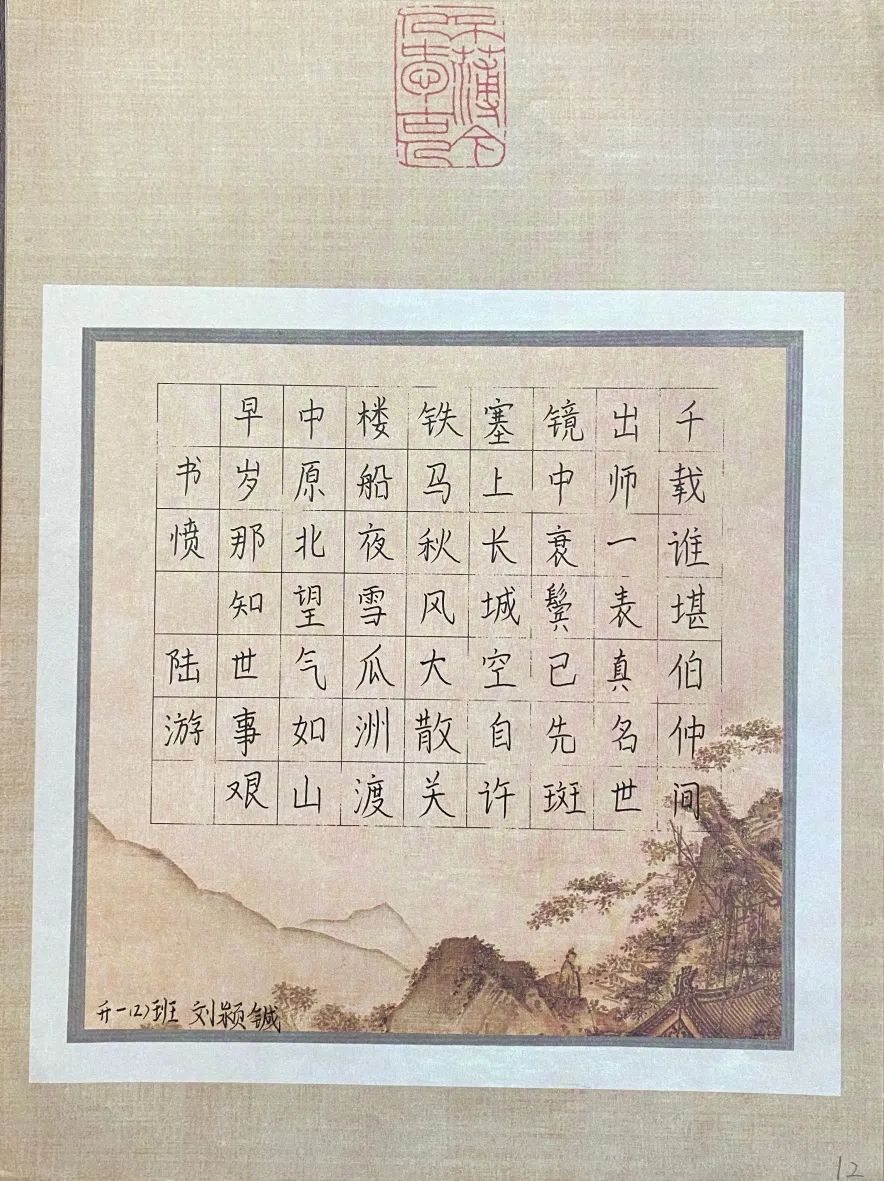 不薄今
人爱古人
书愤 陆游
早岁那知世事艰
中原北望气如山
楼船夜雪瓜洲渡
铁马秋风大散关
塞上长城空自许
镜中衰鬓已先斑
出师一表真名世
千载谁堪伯仲间
升一(2)班 刘颖
12